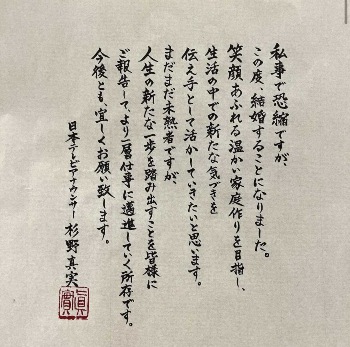 私事で恐縮ですが、
この度、結婚することになりました。
笑顔あふれる温かい家庭作りを目指し、
生活の中での新たな気づきを
伝え手として活かしていきたいと思います。
まだまだ未熟者ですが、
人生の新たな一歩を踏み出すことを皆様に
ご報告して、より一層仕事に邁進していく所存です。
今後とも宜しくお願い致します。
日本テレビアナウンサー 杉野真実
眞實